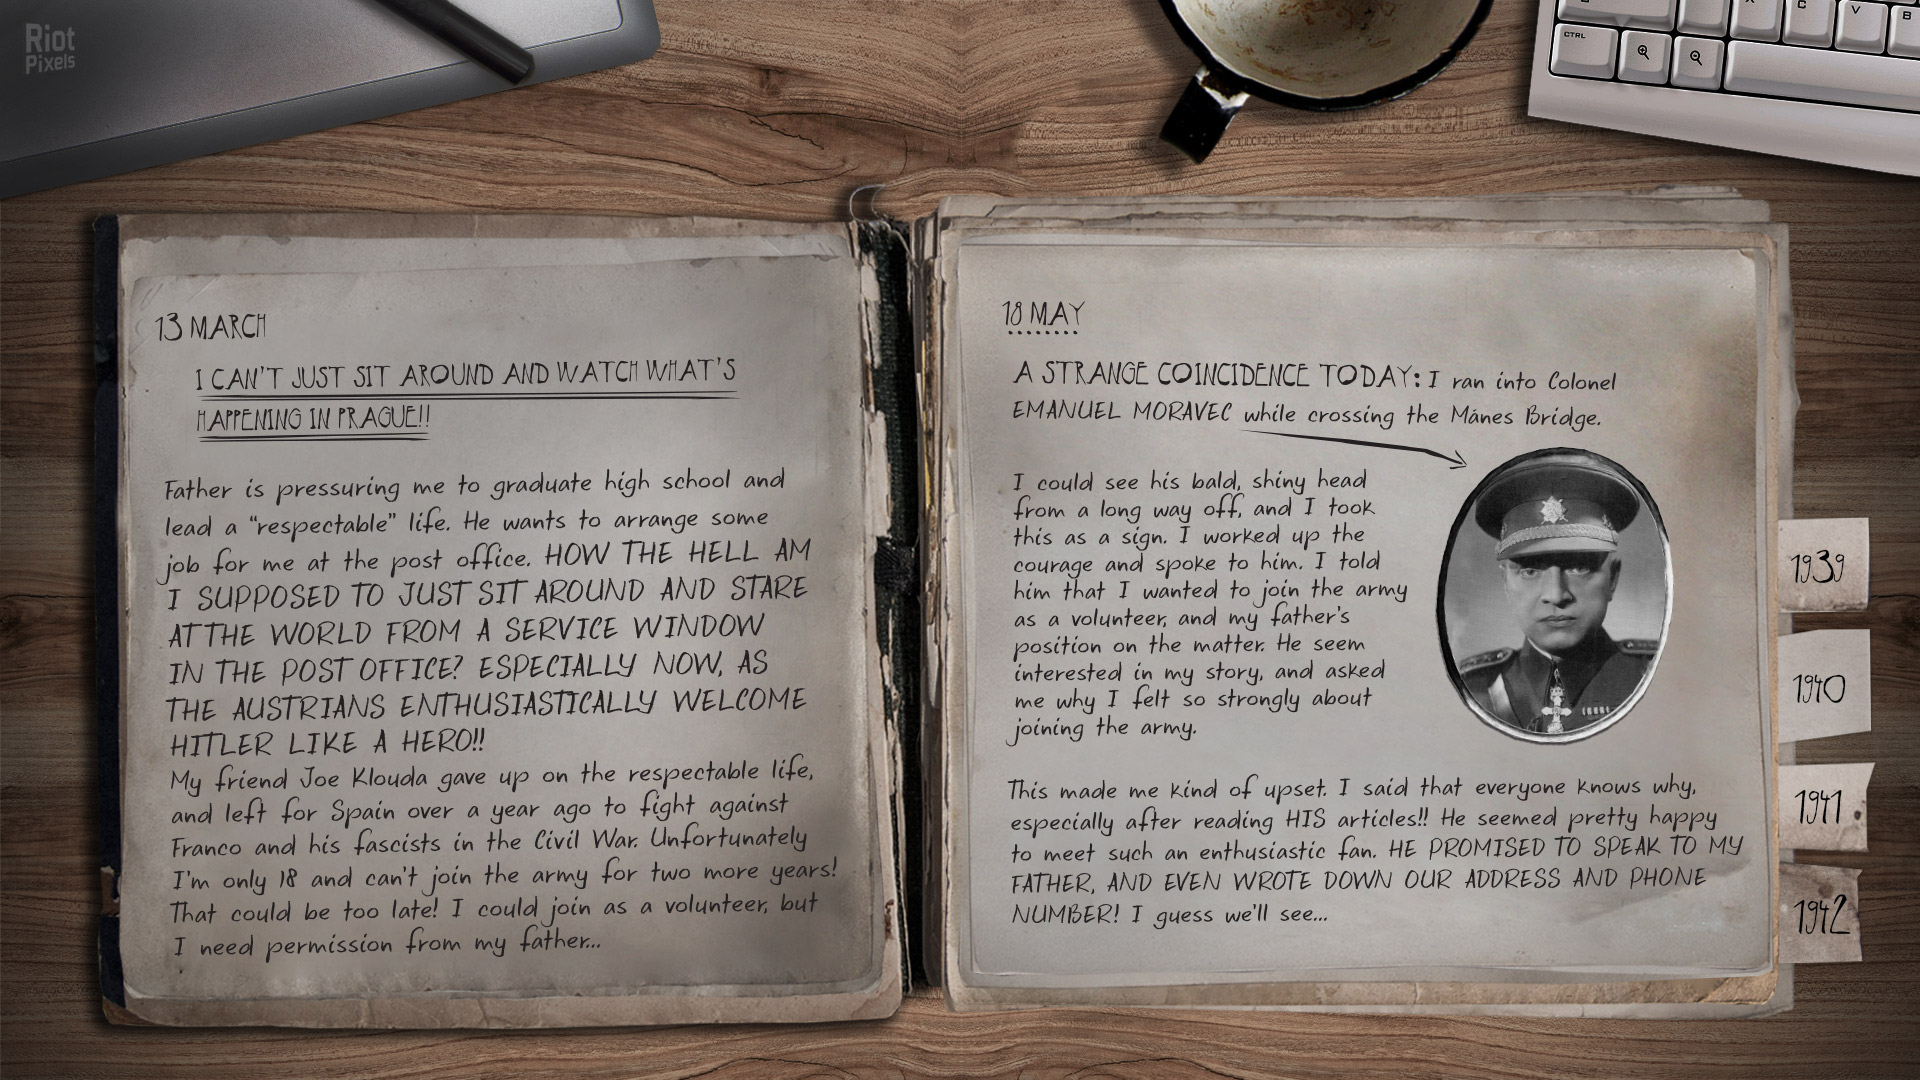 Riot
Pixels
CTRL
X
C
V
B
13 MARCH
I CAN'T JUST SIT AROUND AND WATCH WHAT'S
HAPPENING IN PRAGUE!!
Father is pressuring me to graduate high school and
lead a "respectable" life. He wants to arrange some
job for me at the post office. HOW THE HELL AM
I SUPPOSED TO JUST SIT AROUND AND STARE
AT THE WORLD FROM A SERVICE WINDOW
IN THE POST OFFICE? ESPECIALLY NOW, AS
THE AUSTRIANS ENTHUSIASTICALLY WELCOME
HITLER LIKE A HERO!!
My friend Joe Klouda gave up on the respectable life,
and left for Spain over a year ago to fight against
Franco and his fascists in the Civil War. Unfortunately
I'm only 18 and can't join the army for two more years!
That could be too late! I could join as a volunteer, but
I need permission from my father...
18 MAY
A STRANGE COINCIDENCE TODAY: I ran into Colonel
EMANUEL MORAVEC while crossing the Mánes Bridge.
I could see his bald, shiny head
from a long way off, and I took
this as a sign. I worked up the
courage and spoke to him. I told
him that I wanted to join the army
as a volunteer, and my father's
position on the matter. He seem
interested in my story, and asked
me why I felt so strongly about
joining the army.
This made me kind of upset. I said that everyone knows why,
especially after reading HIS articles!! He seemed pretty happy
to meet such an enthusiastic fan. HE PROMISED TO SPEAK TO MY
FATHER, AND EVEN WROTE DOWN OUR ADDRESS AND PHONE
NUMBER! I guess we'll see...
1939
1940
1941
1942